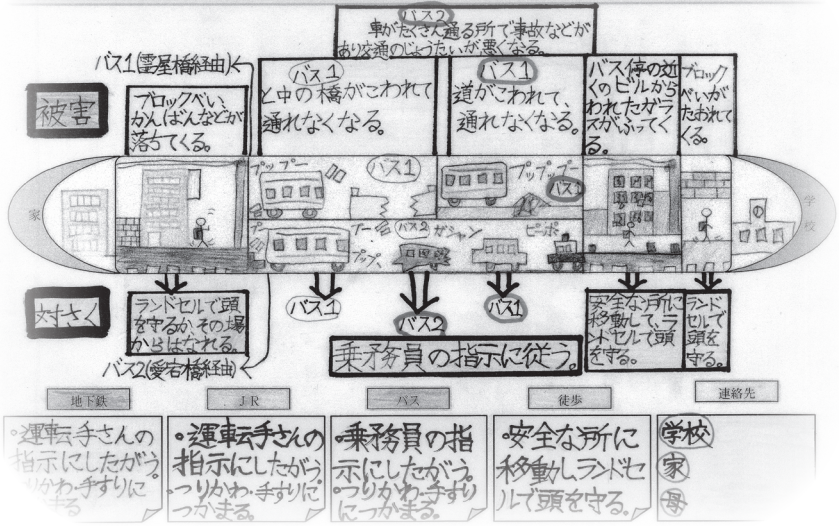 バス2
車がたくさん通る所で事故などが
あり交通のじょうたいが悪くなる。
バス1(雲屋橋経由)
被害
ブロックべい、
かんばんなどが
落ちてくる。
バス1
と中の橋がこわれて
通れなくなる。
バス1
道がこわれて、
通れなくなる。
バス停の近
くのビルから
われたガラ
スがふってく
る。
ブロック
べいが
たおれて
くる。
家
プップー
バス1
プップップー
バス1
学校
プー
プップ、
プー
バス2
ガシャン
ピーポ
対さく
ランドセルで頭
を守るか、その場
からはなれる。
バス1
バス2
バス1
乗務員の指示に従う。
安全な所に
移動して、ラ
ンドセルで頭
を守る。
ランド
セルで
頭を
守る。
バス2(愛宕橋経由)
地下鉄
JR
バス
徒歩
連絡先
・運転手さんの
指示にしたがう。
つりかわ・手すりに
つかまる
・運転手さんの
指示にしたがう
・つりかわ・手すりに
つかまる。
・乗務員の指
示にしたがう。
・つりかわ・手すり
につかまる。
・安全な所に
移動し、ランドセ
ルで頭を守る。
学校
家
母